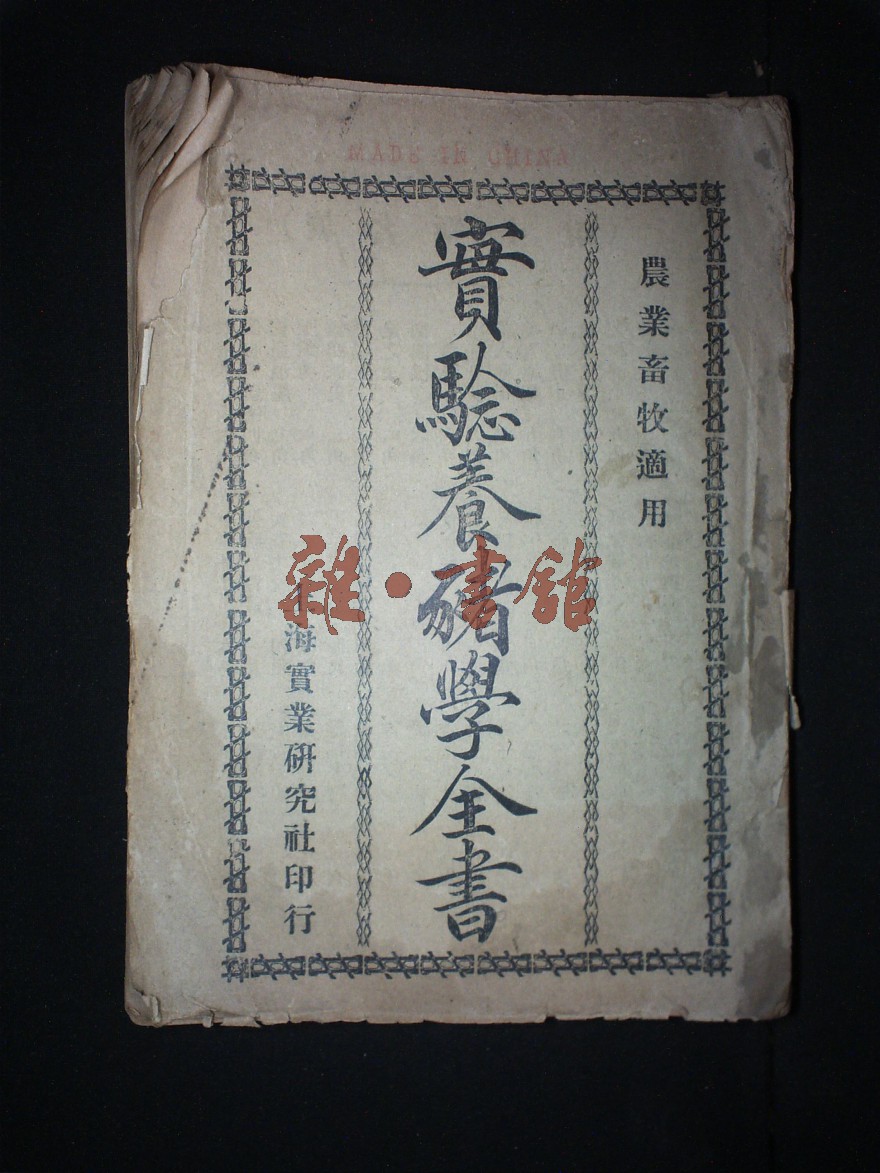 MADE IN CHINA
農業畜牧適用
實騐養豬學全書
海實業硏究社印行
雜·書館